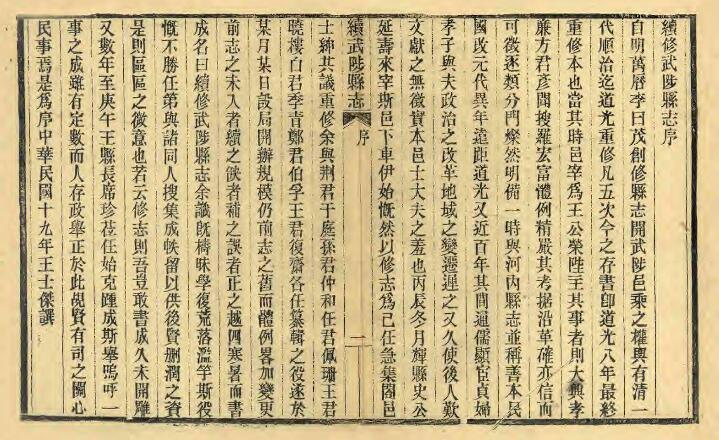 續修武陟縣志序
自明萬曆李曰茂創修縣志開武陟邑乘之權輿有清一
代順治迄道光重修凡五次今之存書卽道光八年最終
重修本也當其時邑宰爲王公榮陞主其事者則大興孝
廉方君彥聞搜羅宏富體例精嚴其考据沿革確亦信而
可徵逐類分門燦然明備一時與河內縣志並稱善本民
國改元代異年遠距道光又近百年其間通儒顯宦貞婦
孝子與夫政治之改革地域之變遷遲之又久使後人歎
文獻之無徵實本邑士大夫之羞也丙辰冬月輝縣史公
延壽來宰斯邑下車伊始慨然以修志爲己任急集闔邑
續武陟縣志
序
二
士紳共議重修余與荆君于庭孫君仲和任君佩珊王君
曉樓白君季青鄭君伯孚王君復齋各任纂輯之役遂於
某月某日設局開辦規模仍前志之舊而體例畧加變更
前志之未入者續之缺者補之誤者正之越四寒暑而書
成名曰續修武陟縣志余識旣檮昧學復荒落濫竽斯役
慨不勝任第與諸同人搜集成帙留以供後賢刪潤之資
是則區區之微意也若云修志則吾豈敢書成久未開雕
又數年至庚午王縣長席珍莅任始克踵成斯舉嗚呼一
事之成雖有定數而人存政舉正於此覘賢有司之關心
民事焉是爲序中華民國十九年王士傑譔